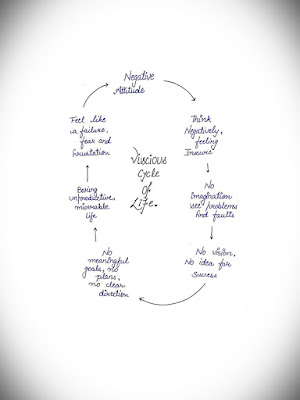 Negative
Attitude
Think
Negatively,
feeling
Insecure
No
Imagination
see problems
And faults
No vision,
No idea for
success
No
meaningful
goals, no
plans,
no clear
direction
Being
unproductive,
miserable
life
Feel like
a failure,
fear and
frustration
Viscious
Cycle
Of
Life.